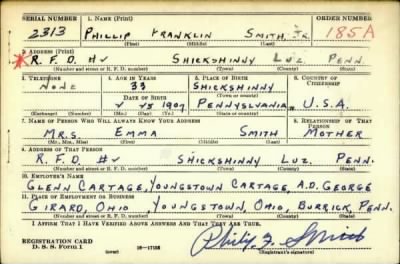 SERIAL NUMBER 1. NAME (Print) ORDER NUMBER
2313 PHILLIP FRANKLIN SMITH, JR. 185A
(First) (Middle) (Last)
2. ADDRESS (Print)
R.F.D. # SHICKSHINNY LUZ. PENN.
(Number and street or R. F. D. number) (Town) (County) (State)
3. TELEPHONE 4. AGE IN YEARS 5. PLACE OF BIRTH 6. COUNTRY OF CITIZENSHIP
NONE 33 SHICKSHINNY
DATE OF BIRTH (Town or county)
1907 PENNSYLVANIA U.S.A.
(Mo.) (Day) (Yr.) (State or country)
7. NAME OF PERSON WHO WILL ALWAYS KNOW YOUR ADDRESS 8. RELATIONSHIP OF THAT PERSON
MRS. EMMA SMITH MOTHER
(Mr., Mrs., Miss) (First) (Middle) (Last)
9. ADDRESS OF THAT PERSON
R.F.D. # SHICKSHINNY LUZ. PENN.
(Number and street or R. F. D. number) (Town) (County) (State)
10. EMPLOYER'S NAME
GLENN CARTAGE, YOUNGSTOWN CARTAGE, A.D. GEORGE
11. PLACE OF EMPLOYMENT OR BUSINESS
GIRARD, OHIO, YOUNGSTOWN, OHIO, BURRICK, PENN.
(Number and street or R. F. D. number) (Town) (County) (State)
I AFFIRM THAT I HAVE VERIFIED ABOVE ANSWERS AND THAT THEY ARE TRUE.
REGISTRATION CARD
D. S. S. FORM 1 16—17105 Philip F. Smith